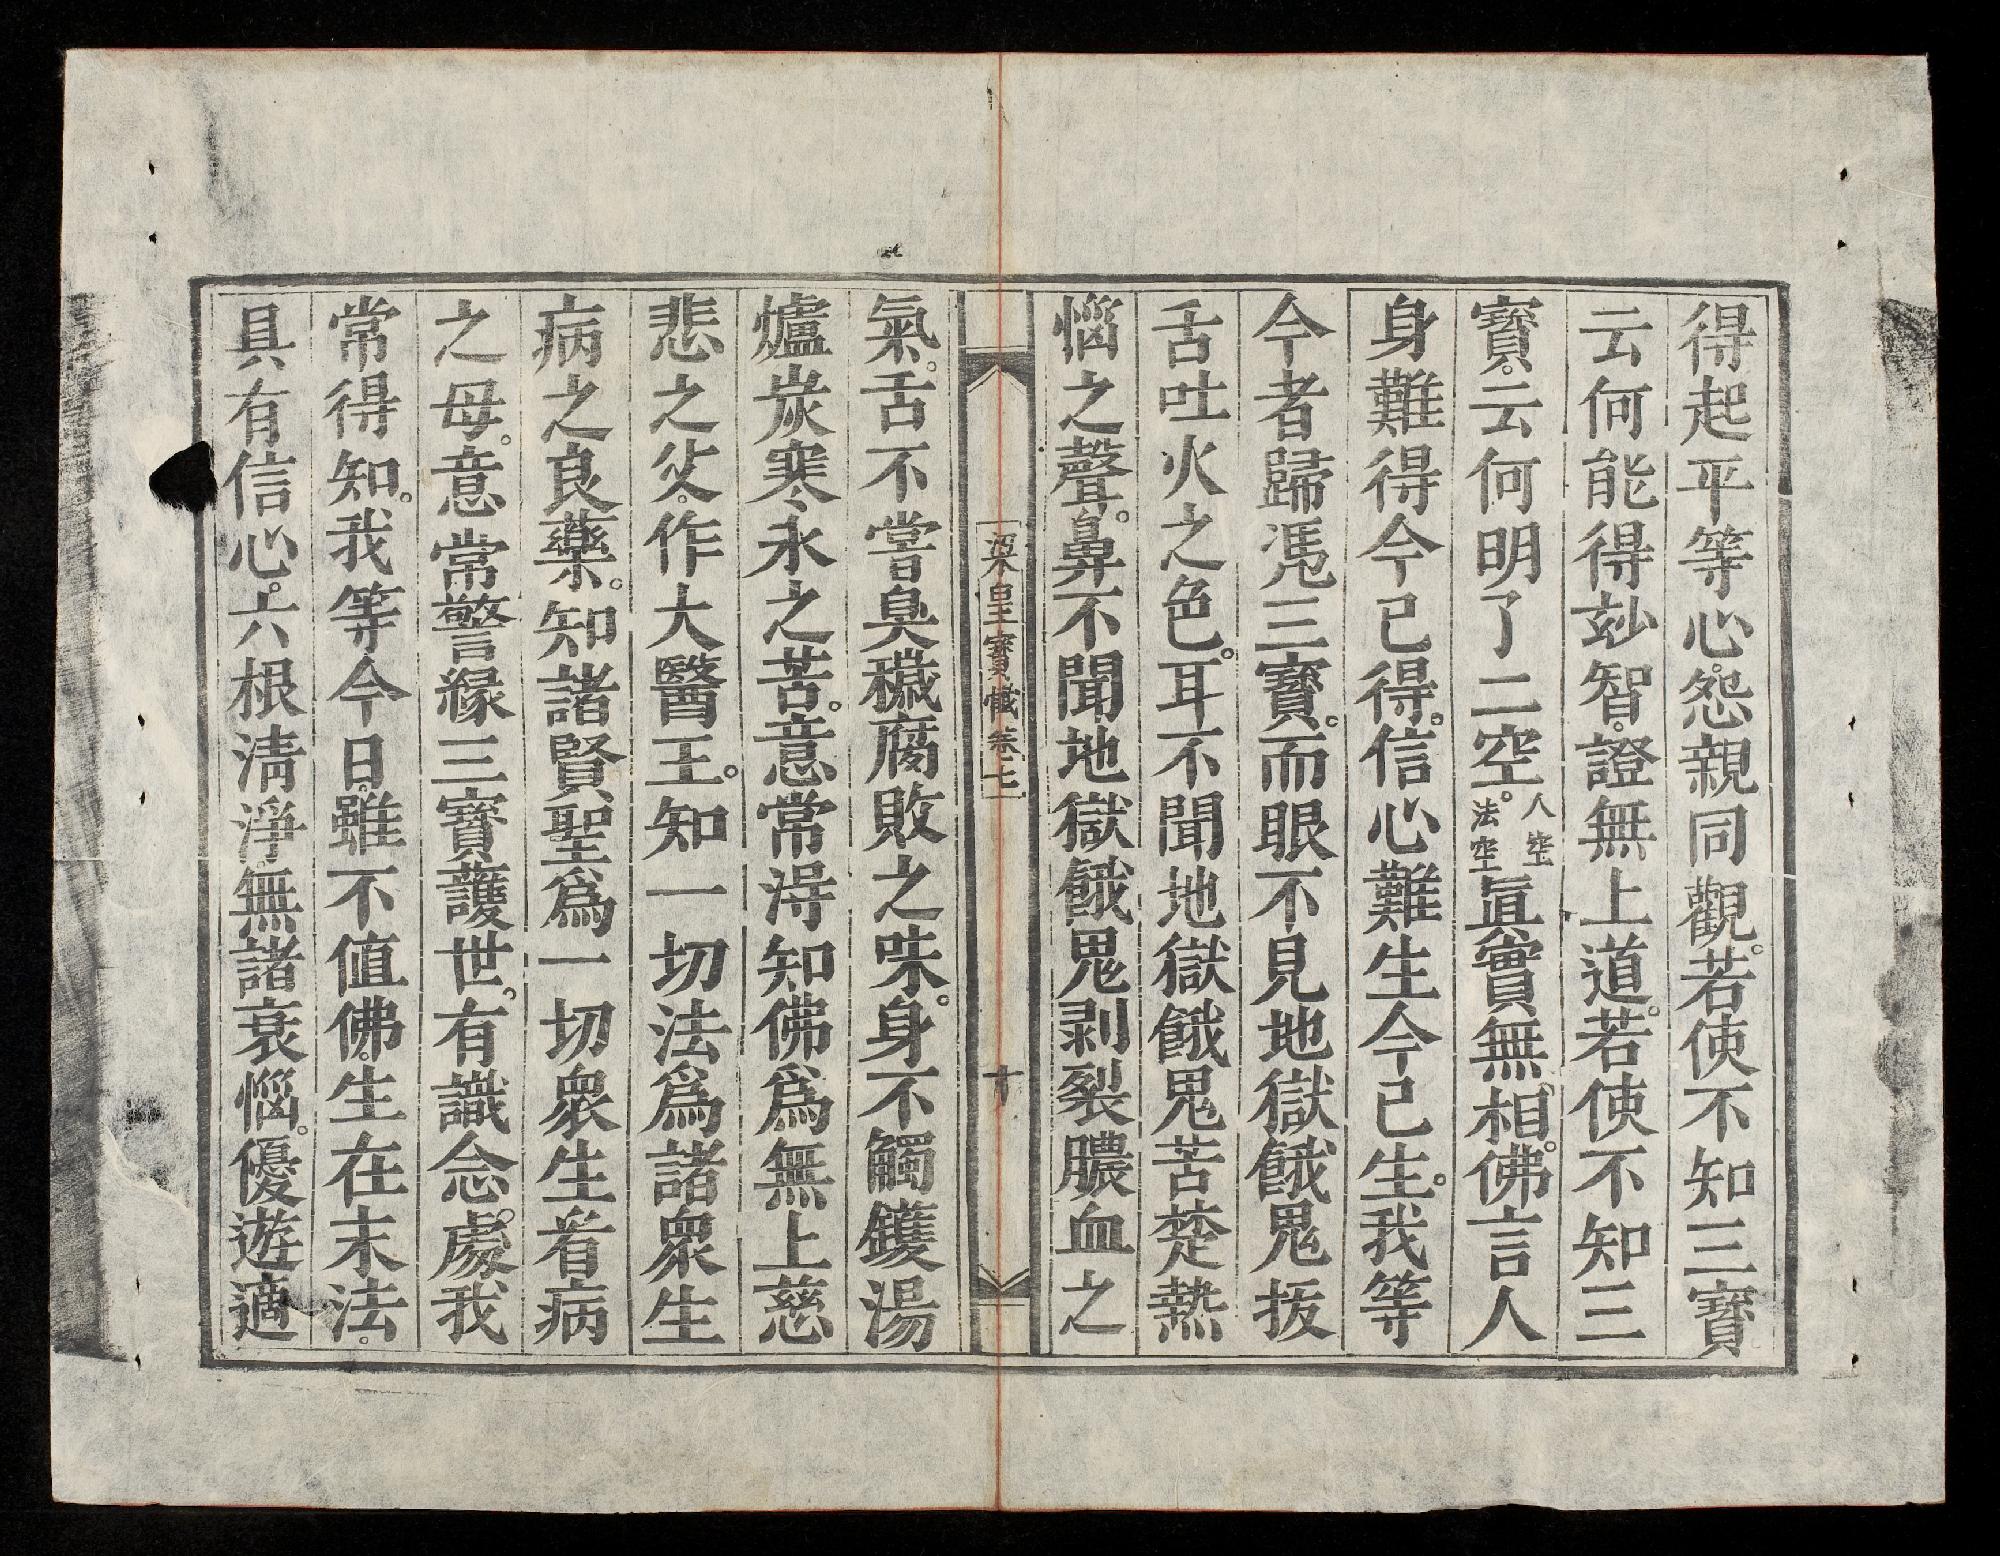 得起平等心。怨親同觀。若使不知三寶
云何能得玅智。證無上道。若使不知三
寶。云何明了二空。人空法空眞實無相。佛言人
身難得今已得。信心難生今已生。我等
今者歸馮三寶。而眼不見地獄餓鬼拔
舌吐火之色。耳不聞地獄餓鬼苦楚熱
惱之聲。鼻不聞地獄餓鬼剥裂膿血之
梁皇寶懺卷七
十
氣。舌不嘗臭穢腐敗之味。身不觸鑊湯
爐炭寒氷之苦。意常得知佛爲無上慈
悲之父。作大醫王。知一切法爲諸衆生
病之良藥。知諸賢聖爲一切衆生看病
之母。意常警緣三寶護世。有識念處。我
常得知。我等今日。雖不值佛。生在末法。
具有信心。六根淸淨。無諸衰惱。優遊適